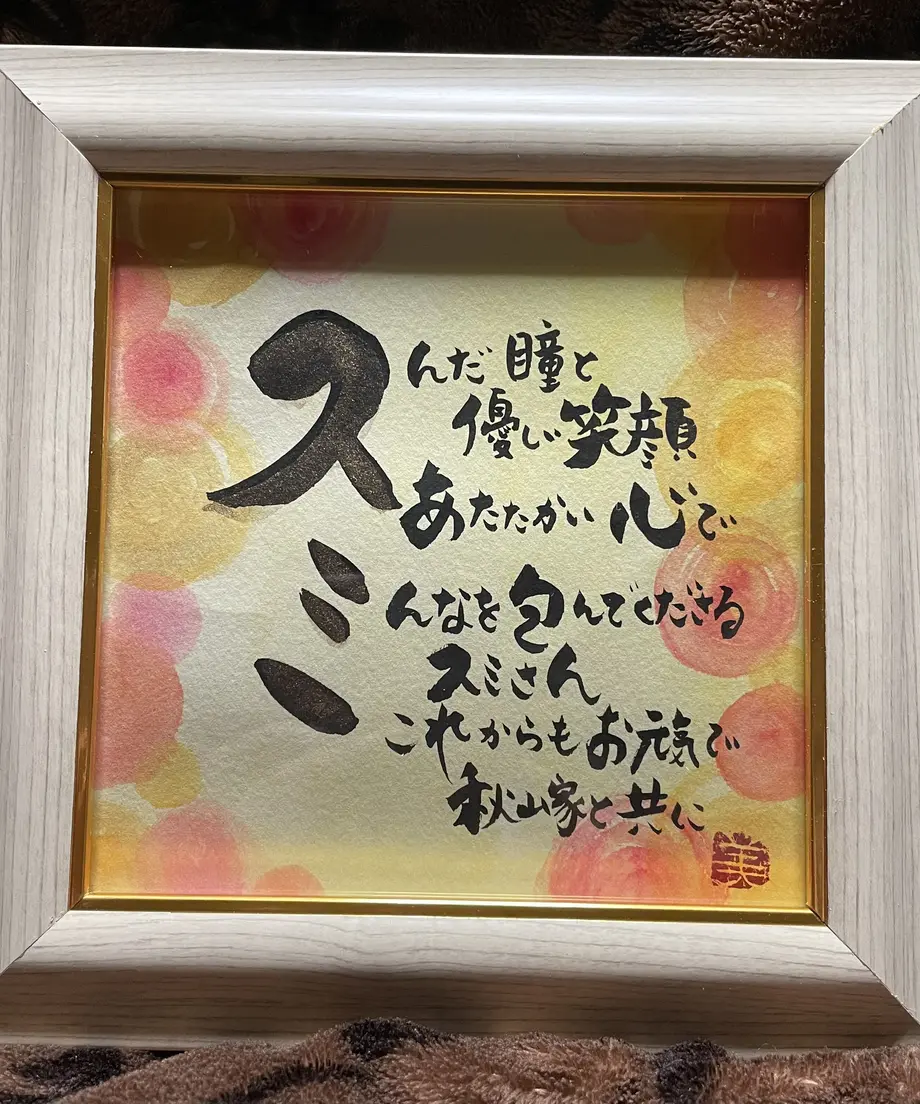 スんだ瞳と
優しい笑顔
あたたかい心で
ミんなを包んでくださる
スミさん
これからもお元気で
秋山家と共に
美